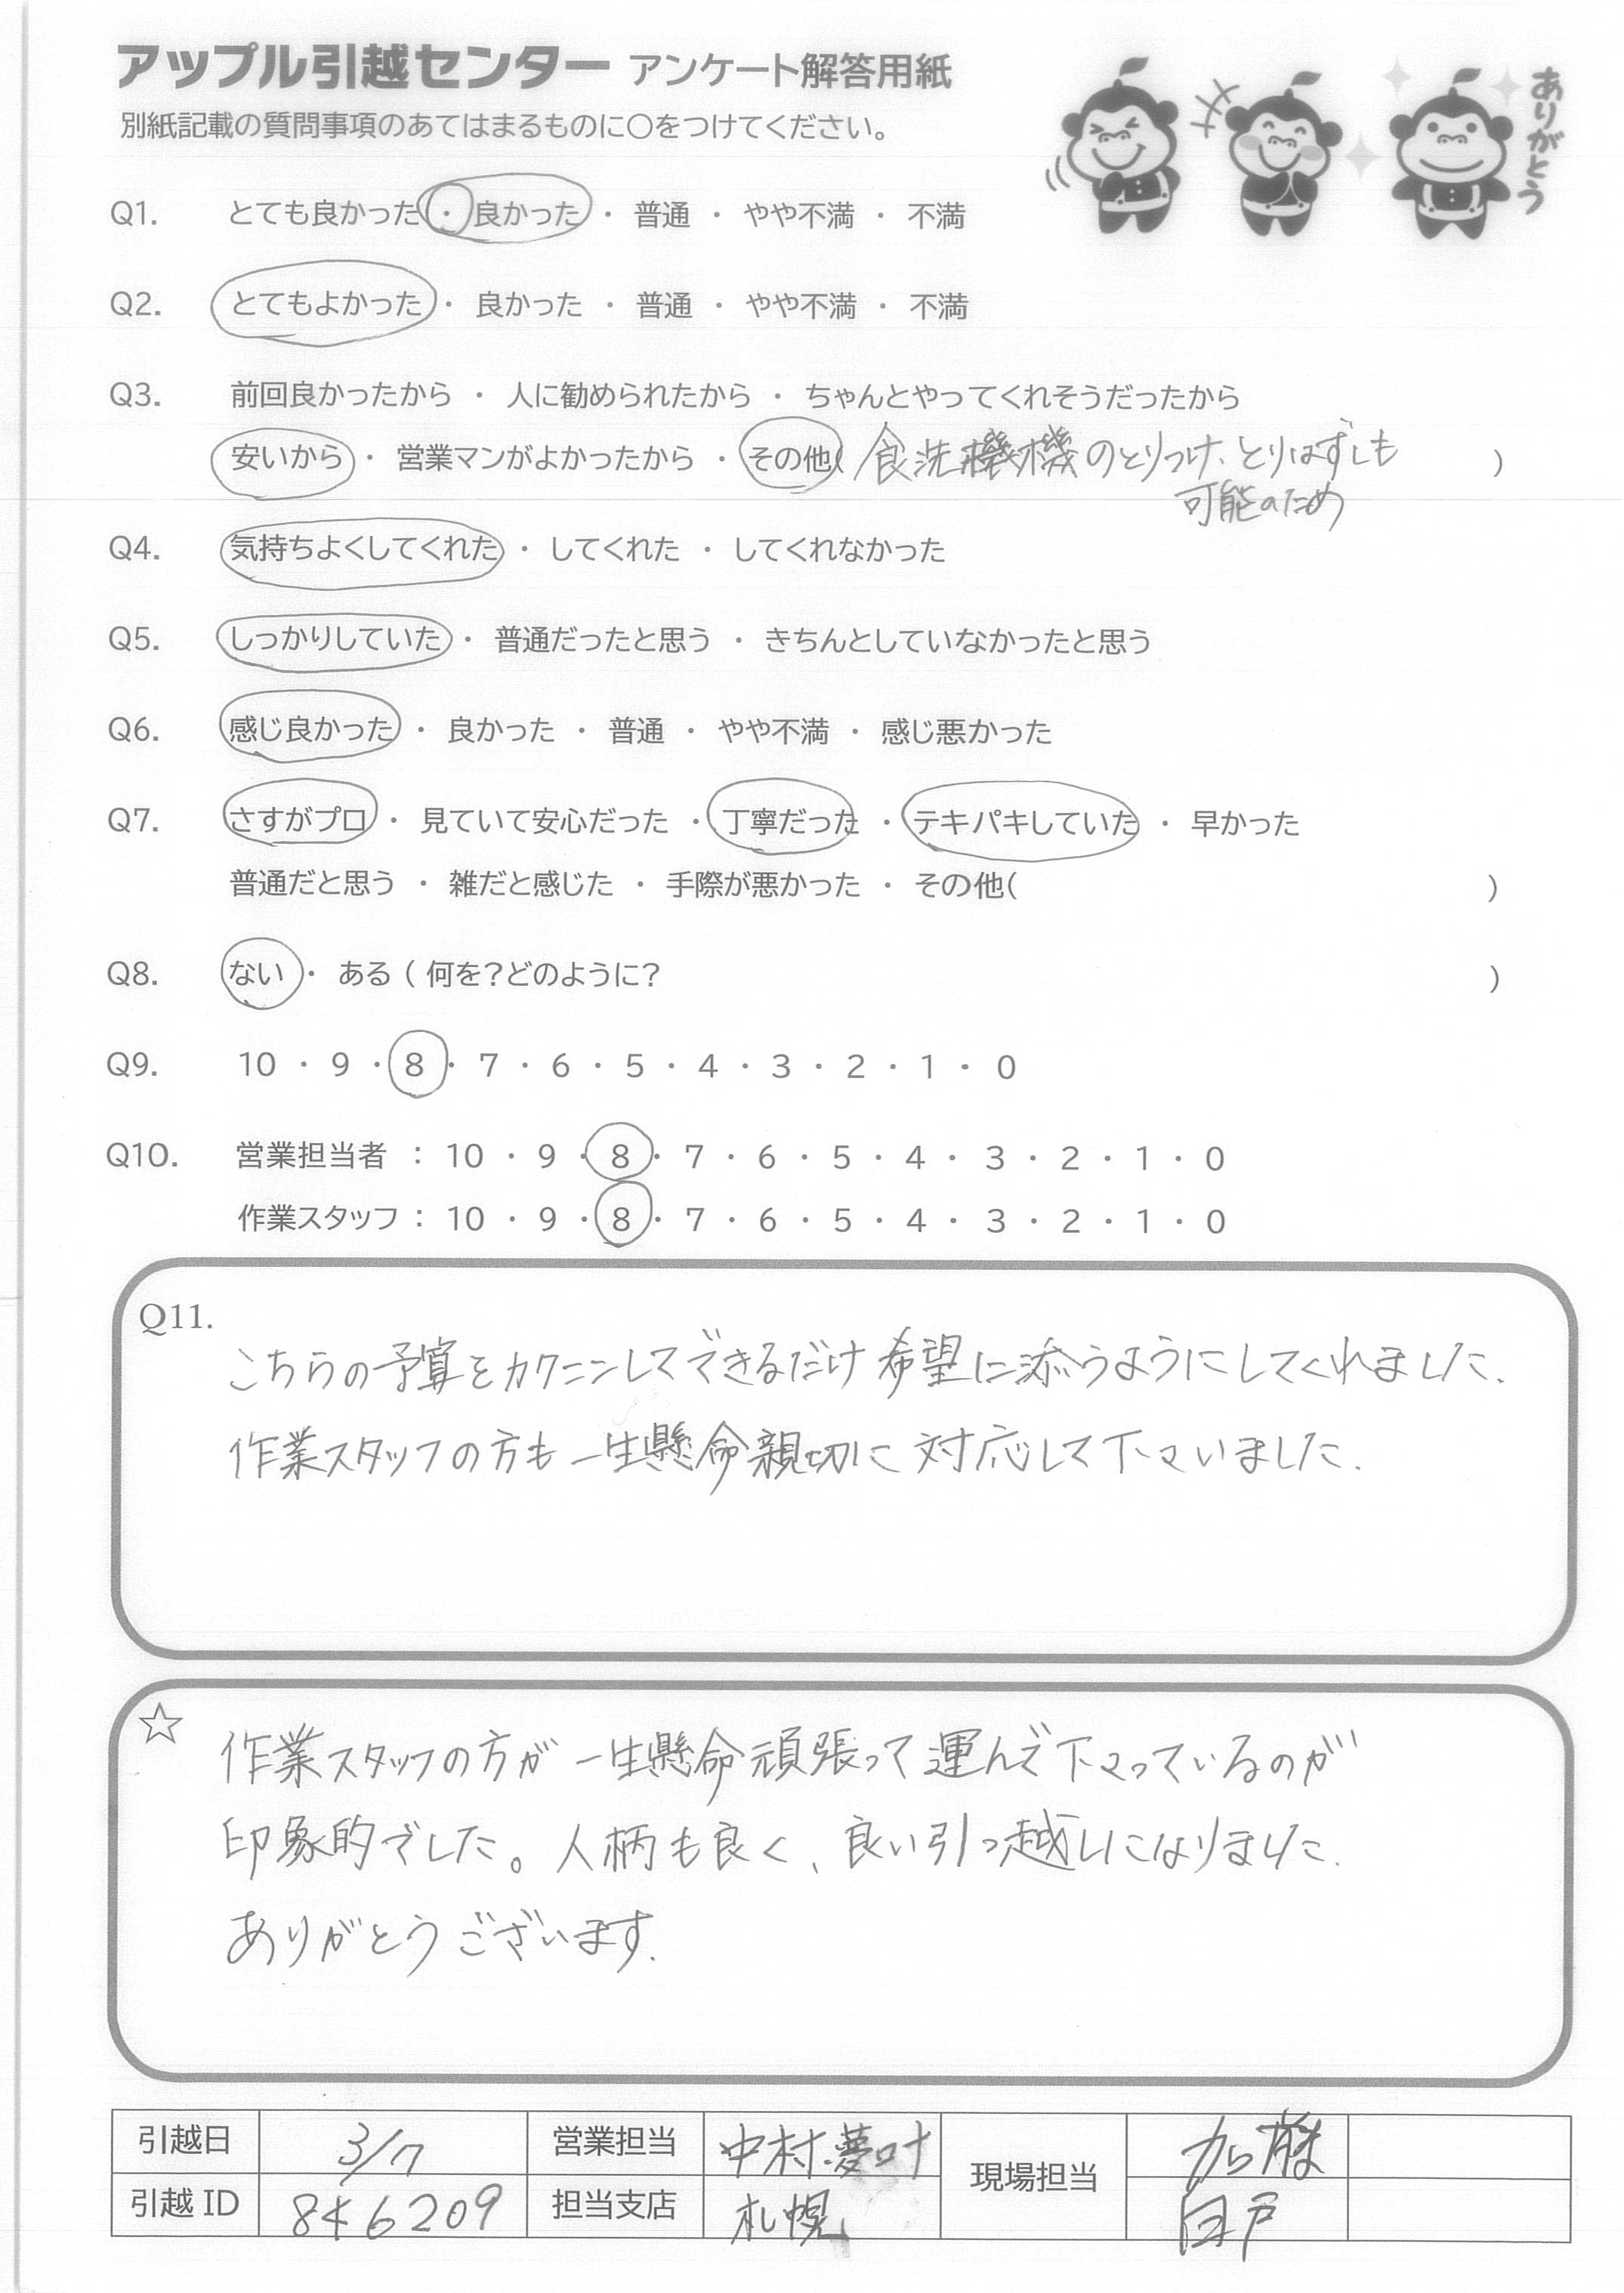 アップル引越センター アンケート解答用紙
別紙記載の質問事項のあてはまるものに○をつけてください。
ありがとう
Q1. とても良かった ・ 良かった ・ 普通 ・ やや不満 ・ 不満
Q2. とてもよかった ・ 良かった ・ 普通 ・ やや不満 ・ 不満
Q3. 前回良かったから ・ 人に勧められたから ・ ちゃんとやってくれそうだったから
安いから ・ 営業マンがよかったから ・ その他( 食洗機のとりつけ、とりはずしも )
可能のため
Q4. 気持ちよくしてくれた ・ してくれた ・ してくれなかった
Q5. しっかりしていた ・ 普通だったと思う ・ きちんとしていなかったと思う
Q6. 感じ良かった ・ 良かった ・ 普通 ・ やや不満 ・ 感じ悪かった
Q7. さすがプロ ・ 見ていて安心だった ・ 丁寧だった ・ テキパキしていた ・ 早かった
普通だと思う ・ 雑だと感じた ・ 手際が悪かった ・ その他( )
Q8. ない ・ ある ( 何を?どのように? )
Q9. 10 ・ 9 ・ 8 ・ 7 ・ 6 ・ 5 ・ 4 ・ 3 ・ 2 ・ 1 ・ 0
Q10. 営業担当者 : 10 ・ 9 ・ 8 ・ 7 ・ 6 ・ 5 ・ 4 ・ 3 ・ 2 ・ 1 ・ 0
作業スタッフ : 10 ・ 9 ・ 8 ・ 7 ・ 6 ・ 5 ・ 4 ・ 3 ・ 2 ・ 1 ・ 0
Q11.
こちらの予算をカクニンしてできるだけ希望に添うようにしてくれました.
作業スタッフの方も一生懸命親切に対応して下さいました.
☆
作業スタッフの方が一生懸命頑張って運んで下さっているのが
印象的でした。人柄も良く、良い引っ越しになりました.
ありがとうございます.
引越日 3/7 営業担当 中村夢叶 現場担当 加藤
引越ID 846209 担当支店 札幌